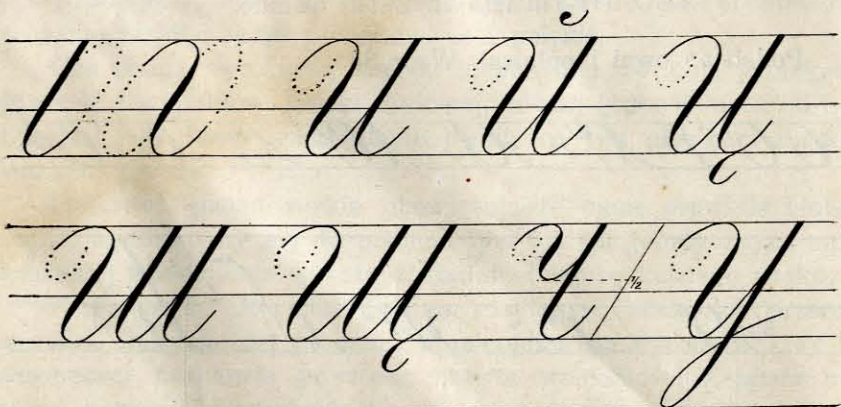 И Й Ц
Ш Щ Ч ½ У